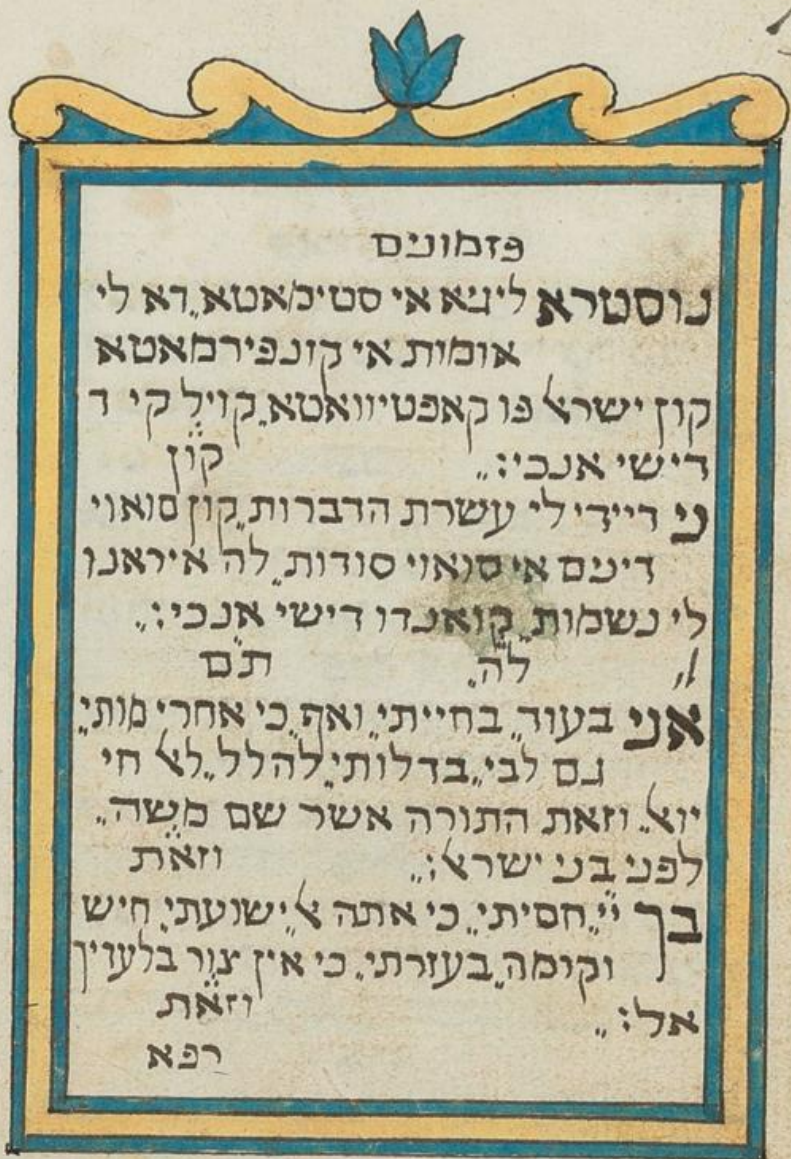 פזמונים
נוסטרא ליגא אי סטימאטא, דא לי
אומות אי קונפירמאטא
קון ישראל פו קאפטיוואטא, קויל קי ד
דישי אנכי:
קון
ני דיידי לי עשרת הדברות, קון סואוי
דינים אי סואוי סודות, לה איראנו
לי נשמות, קואנדו דישי אנכי:
לה תם
אני בעוד, בחייתי, ואף, כי אחרי מותי,
גם לבי, בדלותי, להלל, לאל חי
יואל, וזאת התורה אשר שם משה,
לפני בני ישראל:
וזאת
בך יי, חסיתי, כי אתה אל ישועתי, חיש
וקומה, בעזרתי, כי אין צור בלעדיך
אל:
וזאת
רפא